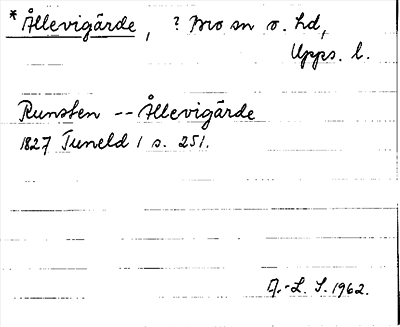 *Ållevigärde, ? Bro sn o. hd,
Upps. l.
Runsten -- Ållevigärde
1827 Tuneld 1 s. 251.
A.-L. S. 1962.